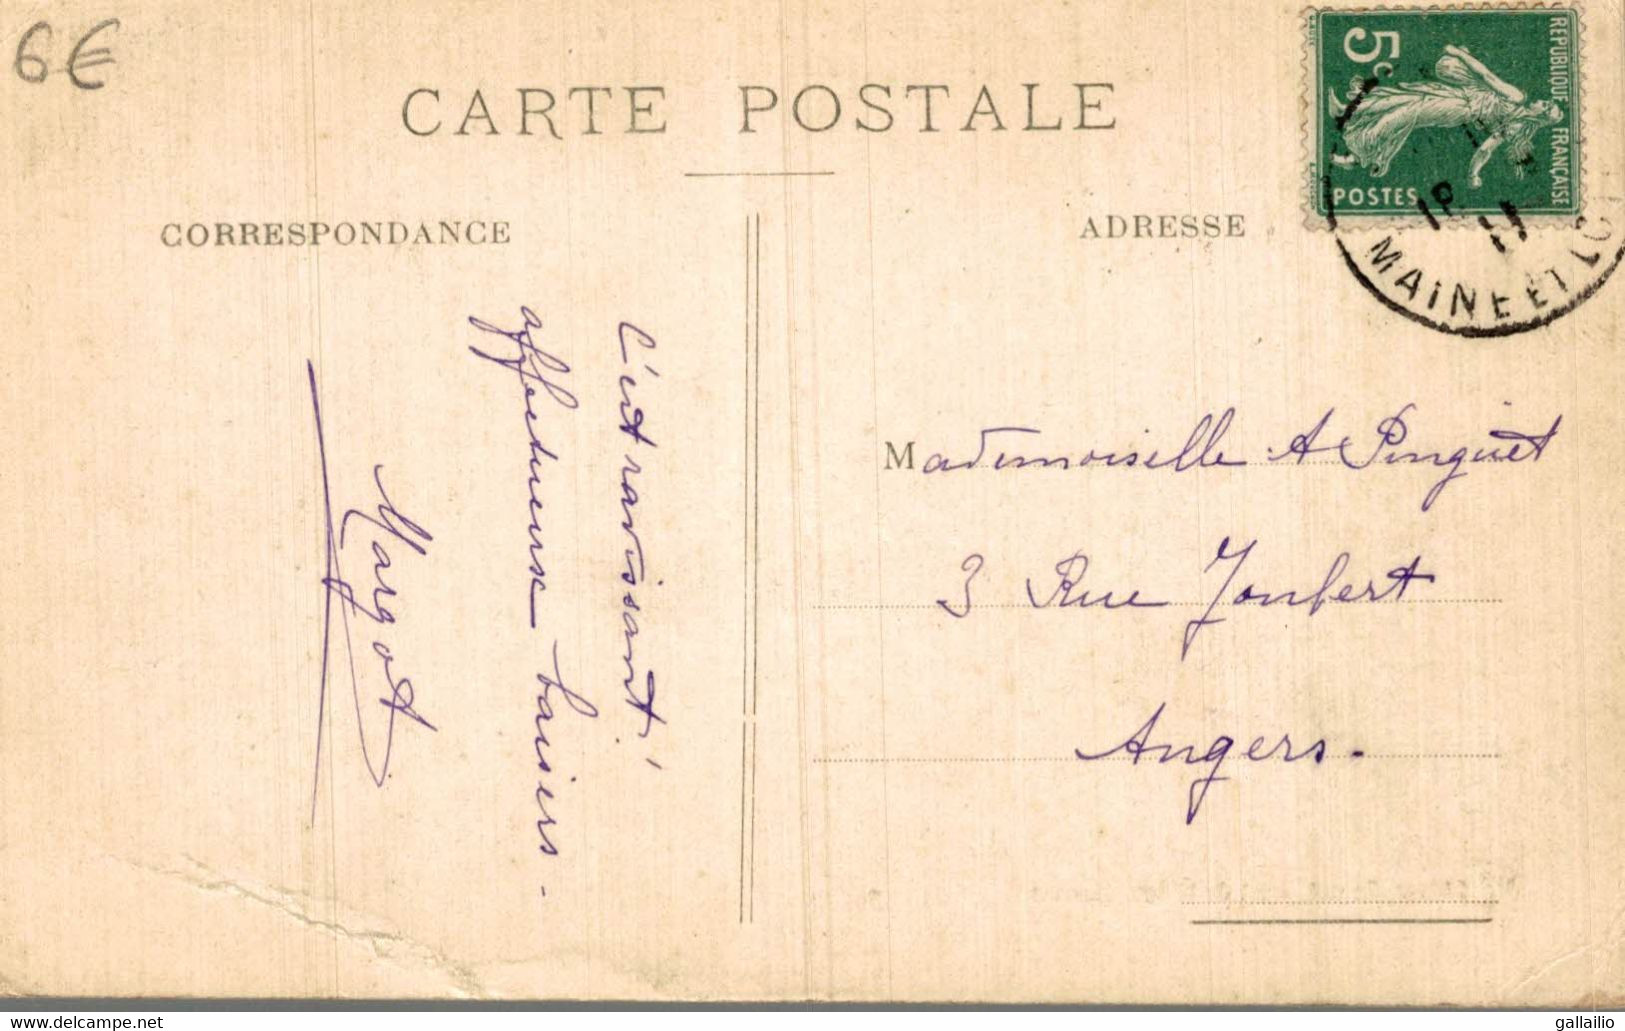 6€
CARTE POSTALE
CORRESPONDANCE
ADRESSE
5c
REPUBLIQUE FRANÇAISE
POSTES
MAINE ET LOI
C'est ravissant!
affectueux baisers -
Margot
Mademoiselle A Pinguet
3 Rue Joubert
Angers.
www.delcampe.net
gallailio